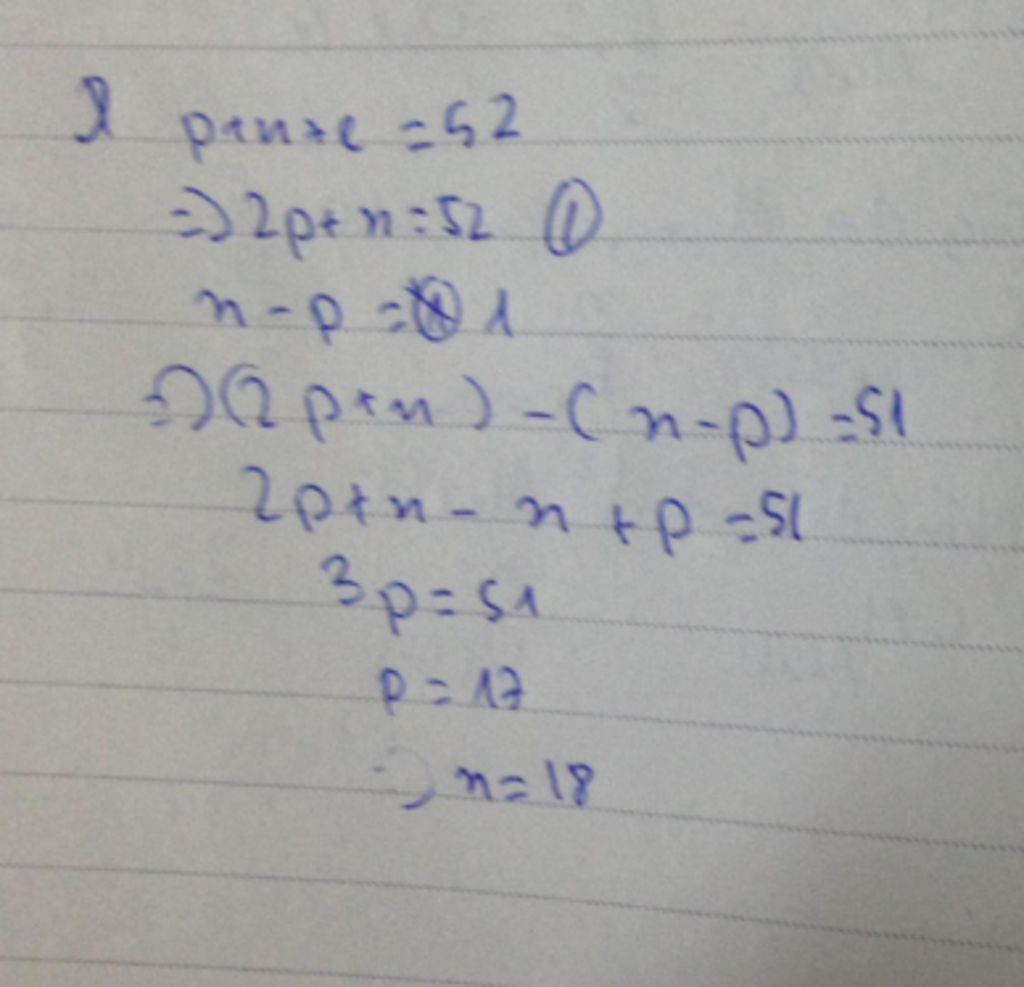 p+n+e = 52
=> 2p+n=52 ①
n-p = 1
=> (2p+n) - (n-p) = 51
2p+n - n + p = 51
3p = 51
p = 17
=> n = 18